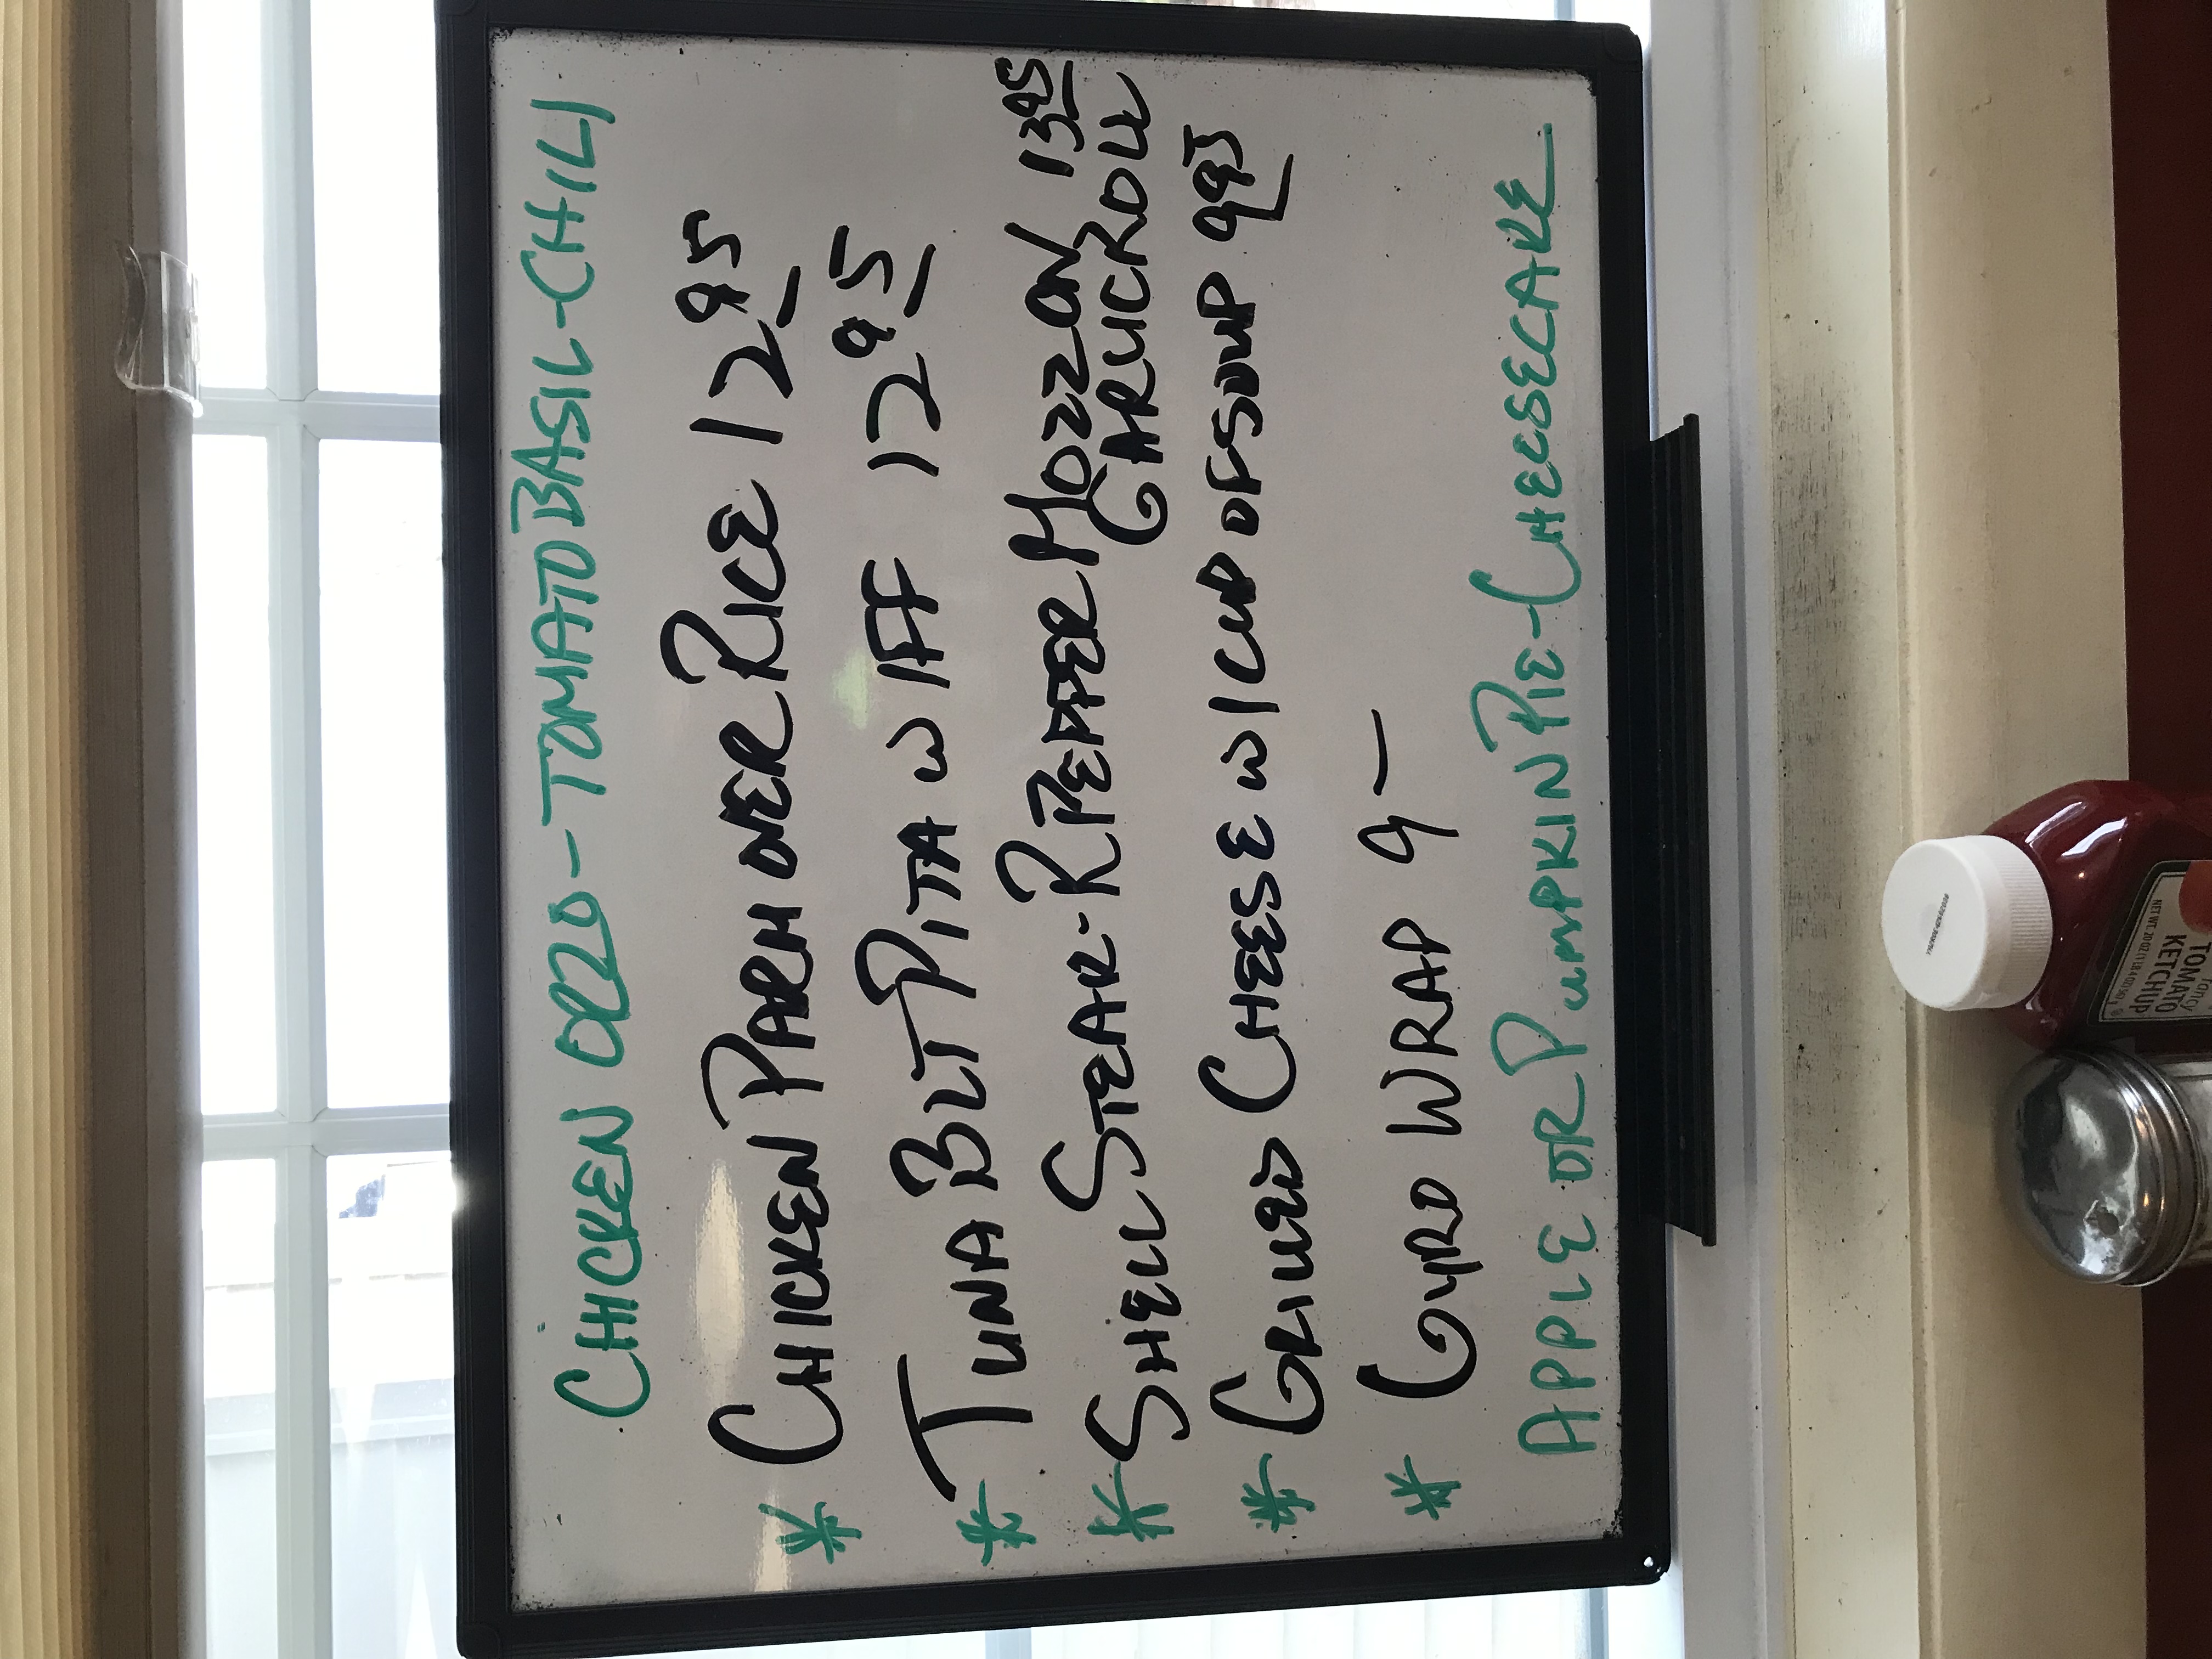 CHICKEN ORZO - TOMATO BASIL - CHILI
* CHICKEN PARM OVER RICE 12 95
* TUNA BLT PITA W FF 12 95
* SHELL STEAK - R PEPPER MOZZ ON 13 95
GARLIC ROLL
* GRILLED CHEESE W/ CUP OF SOUP 9 95
* GYRO WRAP 9 -
APPLE OR PUMPKIN PIE - CHEESECAKE
Fancy
TOMATO
KETCHUP
NET WT. 20 OZ (1 LB 4 OZ) 567 g